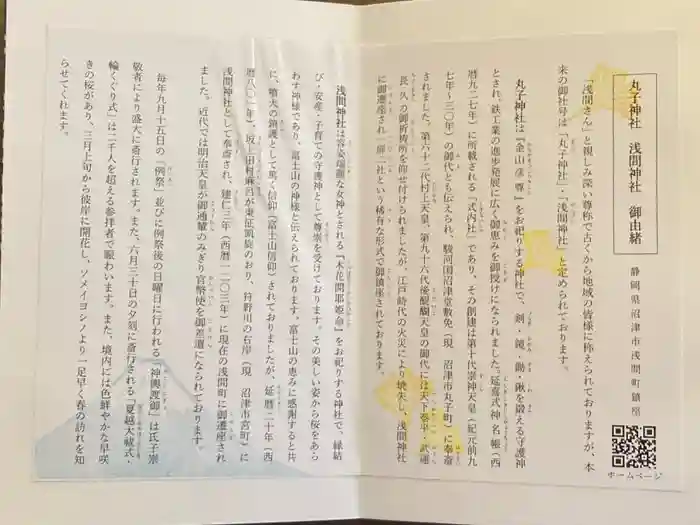 丸子神社 浅間神社 御由緒
静岡県沼津市浅間町鎮座
ホームページ
「浅間さん」と親しみ深い尊称で古くから地域の皆様に称えられておりますが、本
来の御社号は「丸子神社」・「浅間神社」と定められております。
丸子神社は『金山彦尊』をお祀りする神社で、剣・鏡・鋤・鍬を鍛える守護神
とされ、鉄工業の進歩発展に広く御恵みを御授けになられました。延喜式神名帳（西
暦九二七年）に所載される「式内社」であり、その創建は第十代崇神天皇（紀元前九
七年～三〇年）の御代とも伝えられ、駿河国沼津堂敷免（現 沼津市丸子町）に奉斎
されました。第六十二代村上天皇、第九十六代後醍醐天皇の御代には天下泰平、武運
長久の御祈祷所を仰せ付けられましたが、江戸時代の火災により焼失し、浅間神社
に御遷座され一扉二社という稀有な形式で御鎮座されております。
浅間神社は容姿端麗な女神とされる『木花開耶姫命』をお祀りする神社で、縁結
び・安産・子育ての守護神として尊崇を受けております。その美しい姿から桜をあら
わす神様であり、富士山の神様と伝えられております。富士山の恵みに感謝すると共
に、噴火の鎮護として篤く信仰（富士山信仰）されておりましたが、延暦二十年（西
暦八〇一年）、坂上田村麻呂が東征凱旋のおり、狩野川の右岸（現 沼津市宮町）に
浅間神社として奉斎され、建仁三年（西暦一二〇三年）に現在の浅間町に御遷座され
ました。近代では明治天皇が御通輦のみぎり官幣使を御差遣になられております。
毎年九月十五日の「例祭」並びに例祭後の日曜日に行われる「神輿渡御」は氏子崇
敬者により盛大に斎行されます。また、六月三十日の夕刻に斎行される「夏越大祓式・
輪くぐり式」は二千人を超える参拝者で賑わいます。また、境内には色鮮やかな早咲
きの桜があり、三月上旬から彼岸に開花し、ソメイヨシノより一足早く春の訪れを知
らせてくれます。